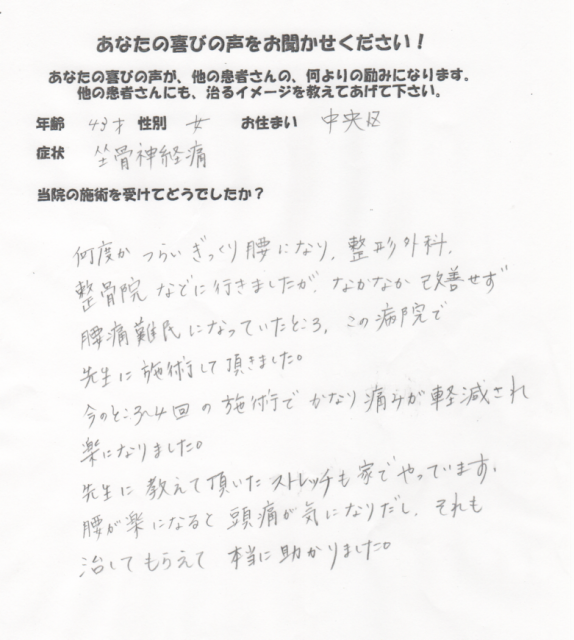 あなたの喜びの声をお聞かせください！
あなたの喜びの声が、他の患者さんの、何よりの励みになります。
他の患者さんにも、治るイメージを教えてあげて下さい。
年齢 43才 性別 女 お住まい 中央区
症状 坐骨神経痛
当院の施術を受けてどうでしたか？
何度か つらい ぎっくり腰になり、整形外科、
整骨院 などに行きましたが、なかなか改善せず
腰痛難民になっていたところ、この病院で
先生に施術して頂きました。
今のところ4回の施術でかなり痛みが軽減され
楽になりました。
先生に教えて頂いたストレッチも家でやっています。
腰が楽になると頭痛が気になりだし、それも
治してもらえて 本当に助かりました。